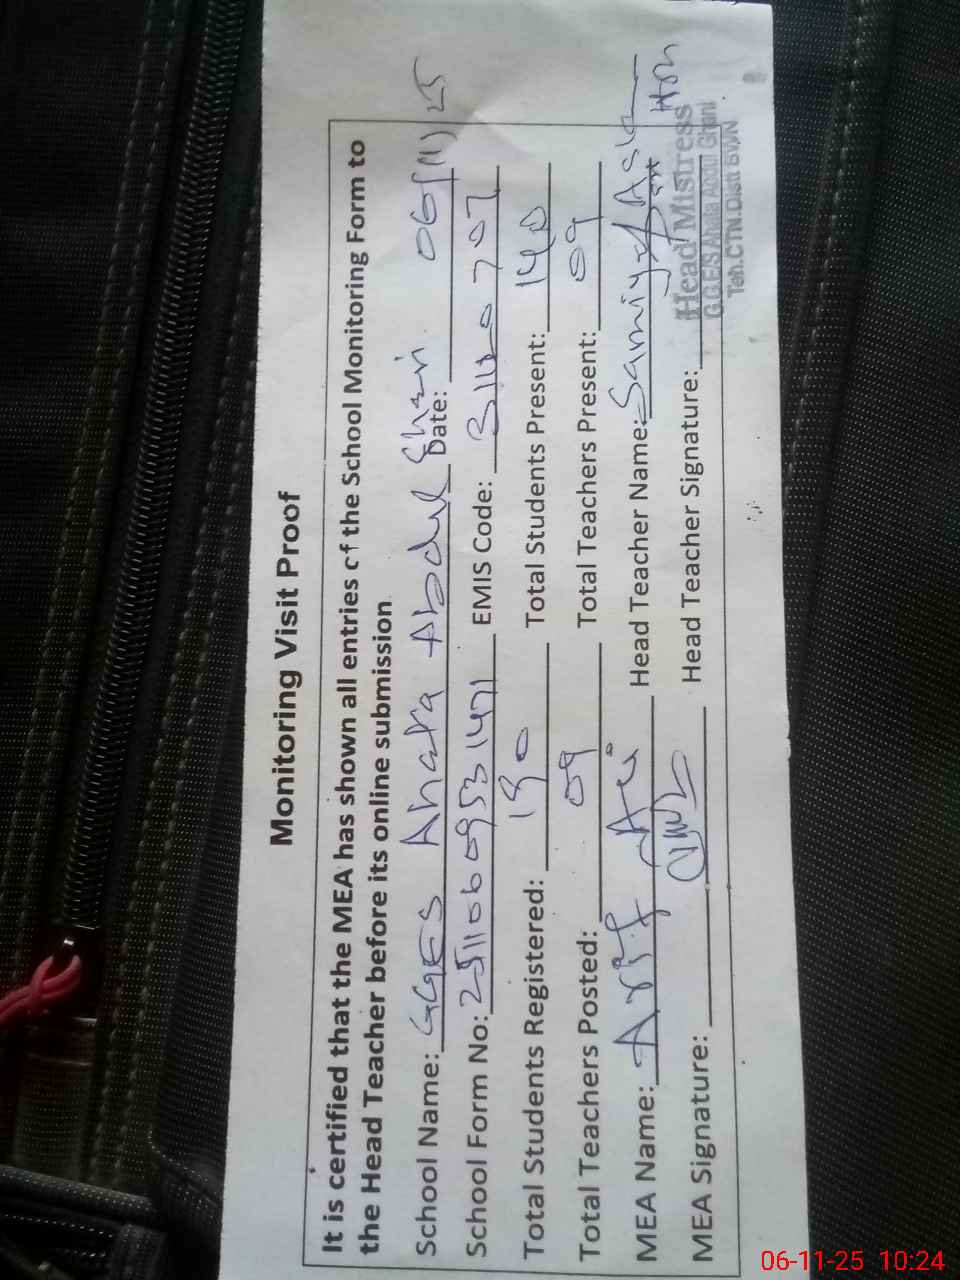 Monitoring Visit Proof
It is certified that the MEA has shown all entries of the School Monitoring Form to
the Head Teacher before its online submission
School Name: GGES Ahata Abdul Ghani Date: 06/11/25
School Form No: EMIS Code:
Total Students Registered: Total Students Present: 140
Total Teachers Posted: 09 Total Teachers Present: 09
MEA Name: Arif Ali Head Teacher Name: Samiya Aslam
MEA Signature: Head Teacher Signature:
Head Mistress
G.G.E/S Ahata Abdul Ghani
Teh.CTN.Distt BWN
06-11-25 10:24